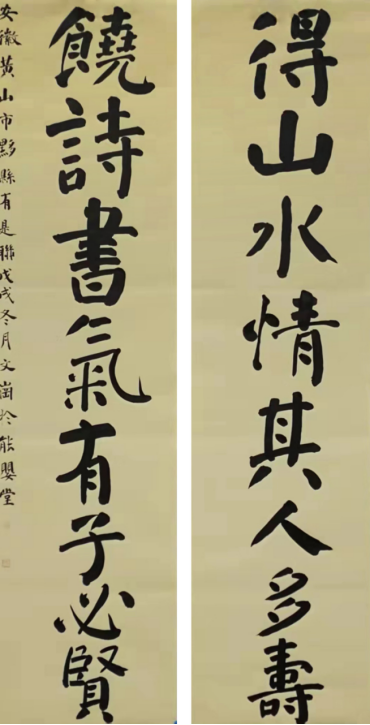 得山水情其人多壽
饒詩書氣有子必賢
安徽黄山市黟縣有是聯戊戌冬月文崗於能嬰堂